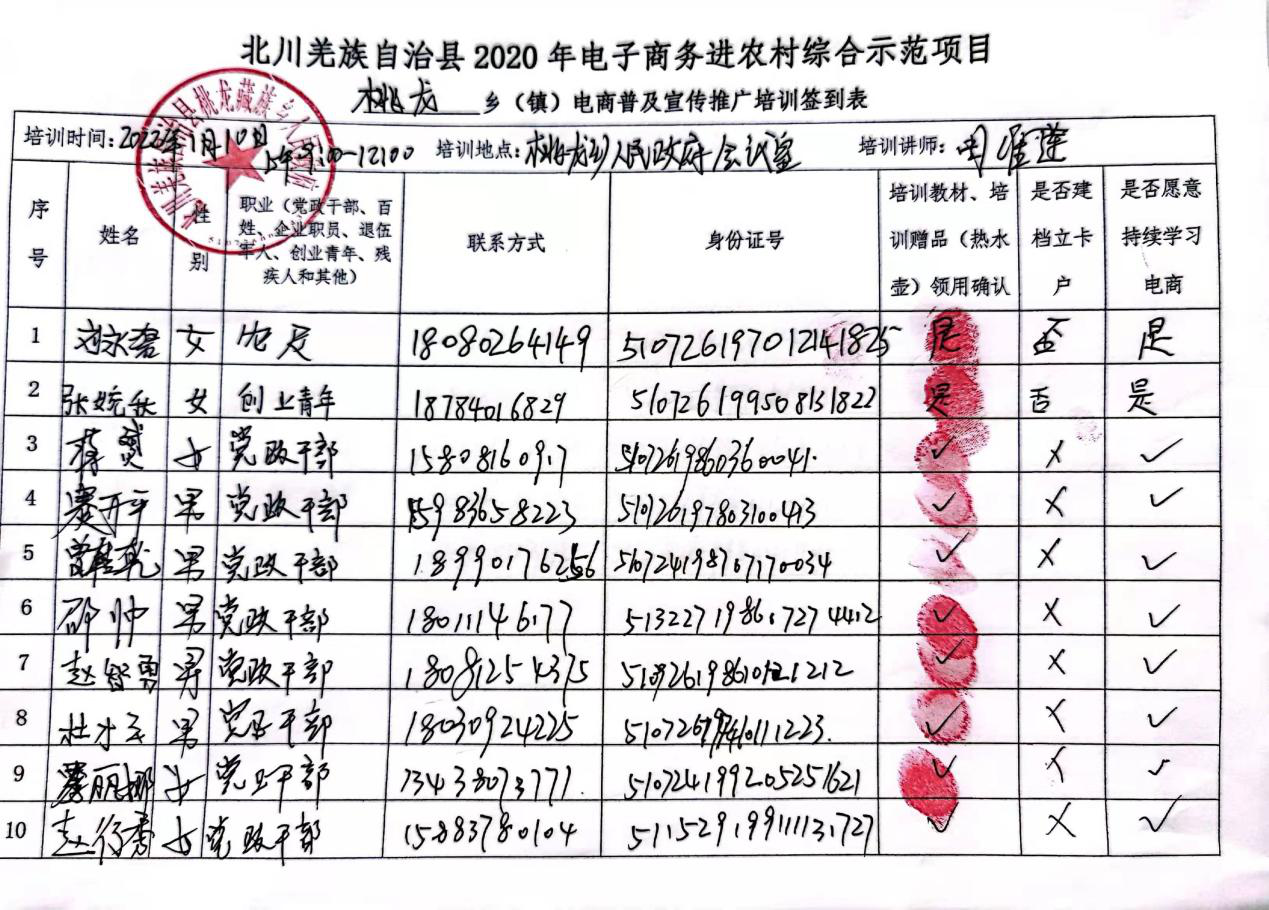 北川羌族自治县2020年电子商务进农村综合示范项目
桃龙 乡（镇）电商普及宣传推广培训签到表
培训时间：2022年1月10日 上午9:00-12:00 培训地点：桃龙乡人民政府会议室 培训讲师：
序号 姓名 性别 职业（党政干部、百姓、企业职员、退伍军人、创业青年、残疾人和其他） 联系方式 身份证号 培训教材、培训赠品（热水壶）领用确认 是否建档立卡户 是否愿意持续学习电商
1 女 农民 18080264149 510726197012141825 是 否 是
2 女 创业青年 18784016829 510726199508131822 是 否 是
3 女 党政干部 15808160917 ✓ × ✓
4 开平 男 党政干部 15983658223 ✓ × ✓
5 男 党政干部 ✓ × ✓
6 邵帅 男 党政干部 18011146177 ✓ × ✓
7 赵智勇 男 党政干部 18081254375 ✓ × ✓
8 男 党政干部 18030924225 ✓ × ✓
9 丽娜 女 党政干部 510724199205251621 ✓ × ✓
10 女 党政干部 15883780104 511529199111131727 ✓ × ✓